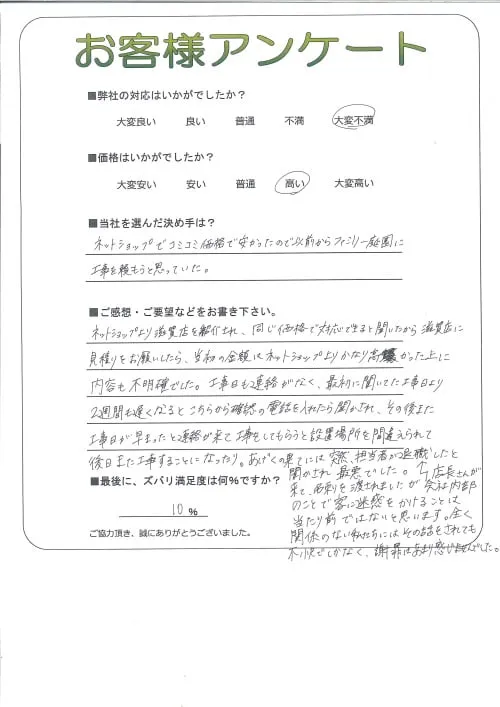 お客様アンケート
■弊社の対応はいかがでしたか？
大変良い 良い 普通 不満 大変不満
■価格はいかがでしたか？
大変安い 安い 普通 高い 大変高い
■当社を選んだ決め手は？
ネットショップでコミコミ価格で安かったので以前からファミリー庭園に
工事を頼もうと思っていた。
■ご感想・ご要望などをお書き下さい。
ネットショップより滋賀店を紹介され、同じ価格で対応できると聞いたから滋賀店に
見積りをお願いしたら、当初の金額はネットショップよりかなり高かった上に
内容も不明確でした。工事日も連絡がなく、最初に聞いてた工事日より
2週間も遅くなるとこちらから確認の電話を入れたら聞かされ、その後また
工事日が早まったと連絡が来て工事をしてもらうと設置場所を間違えられて
後日また工事することになったり。あげくの果てには突然、担当者が退職したと
聞かされ最悪でした。↑店長さんが
■最後に、ズバリ満足度は何％ですか？
10 %
来て、名刺を渡されましたが会社内部
のことで客に迷惑をかけることは
当たり前ではないと思います。全く
関係のない私たちにはその話をされても
不快でしかなく、謝罪はあまり感じませんでした。
ご協力頂き、誠にありがとうございました。